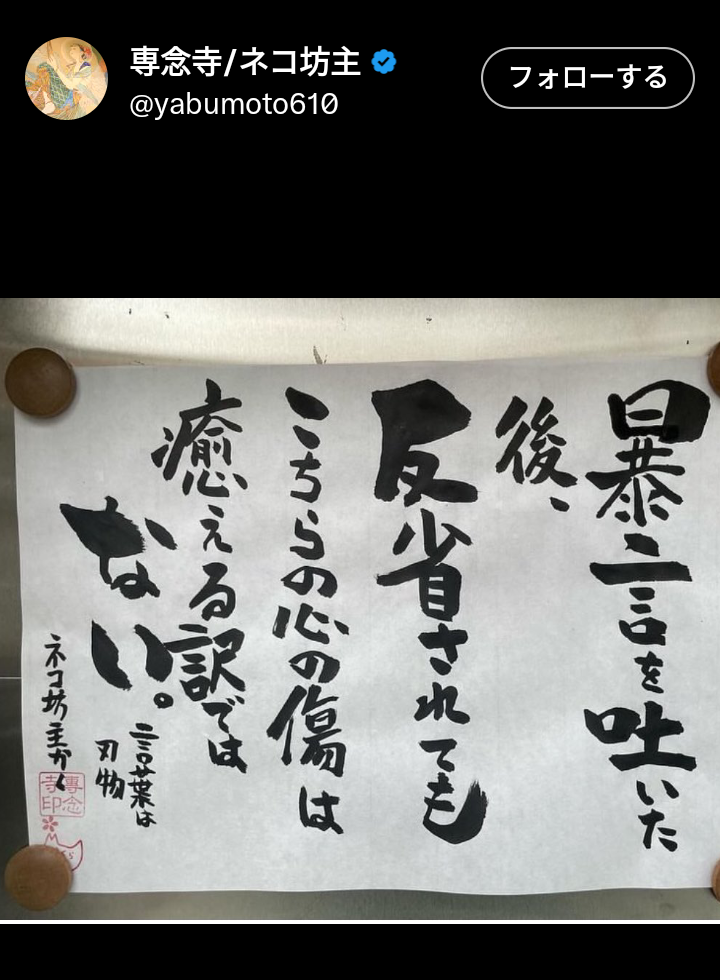 専念寺/ネコ坊主
@yabumoto610
フォローする
暴言を吐いた
後、
反省されても
こちらの心の傷は
癒える訳では
ない。
言葉は
刃物
ネコ坊主かく
専念
寺印